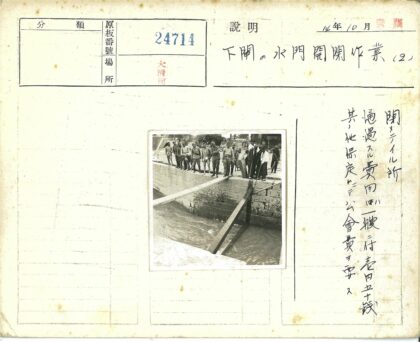 分類
原板番號
24714
場所
大清河
説明
16年10月
下閘の水門開閉作業(2)
開イテイル所
通過スル費用ハ一艘ニ付壱円五十銭
其ノ他保定ニテ公會費ヲ要ス